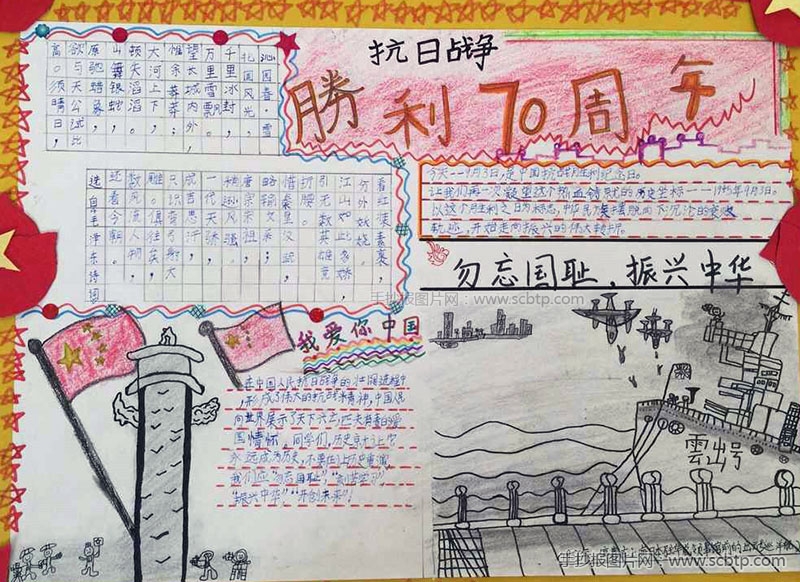 抗日战争
勝利70周年
沁园春雪
北国风光，
千里冰封，
万里雪飘。
望长城内外，
惟余莽莽，
大河上下，
顿失滔滔，
山舞银蛇，
原驰蜡象，
欲与天公试比
高。须晴日，
看红装素裹，
分外妖娆。
江山如此多娇，
引无数英雄竞
折腰。
惜秦皇汉武，
略输文采，
唐宗宋祖，
稍逊风骚。
一代天骄，
成吉思汗，
只识弯弓射大
雕。俱往矣，
数风流人物，
还看今朝。
选自毛泽东诗词
今天——9月3日，是中国抗战胜利纪念日。
让我们再一次凝望这个热血铸就的历史坐标——1945年9月3日。
以这个胜利之日为标志，中华民族摆脱向下沉沦的衰败
轨迹，开始走向振兴的伟大转折。
勿忘国耻，振兴中华
手抄报图片网：www.scbtp.com
我爱你中国
在中国人民抗日战争的壮阔进程中
，形成了伟大的抗战精神，中国人民
向世界展示了天下兴亡，匹夫有责的爱
国情怀。同学们，历史
永远成为历史，不要
我们应“勿忘国耻”，
“振兴中华”“开创未来”！
雲出号
手抄报图片网：www.scbtp.com